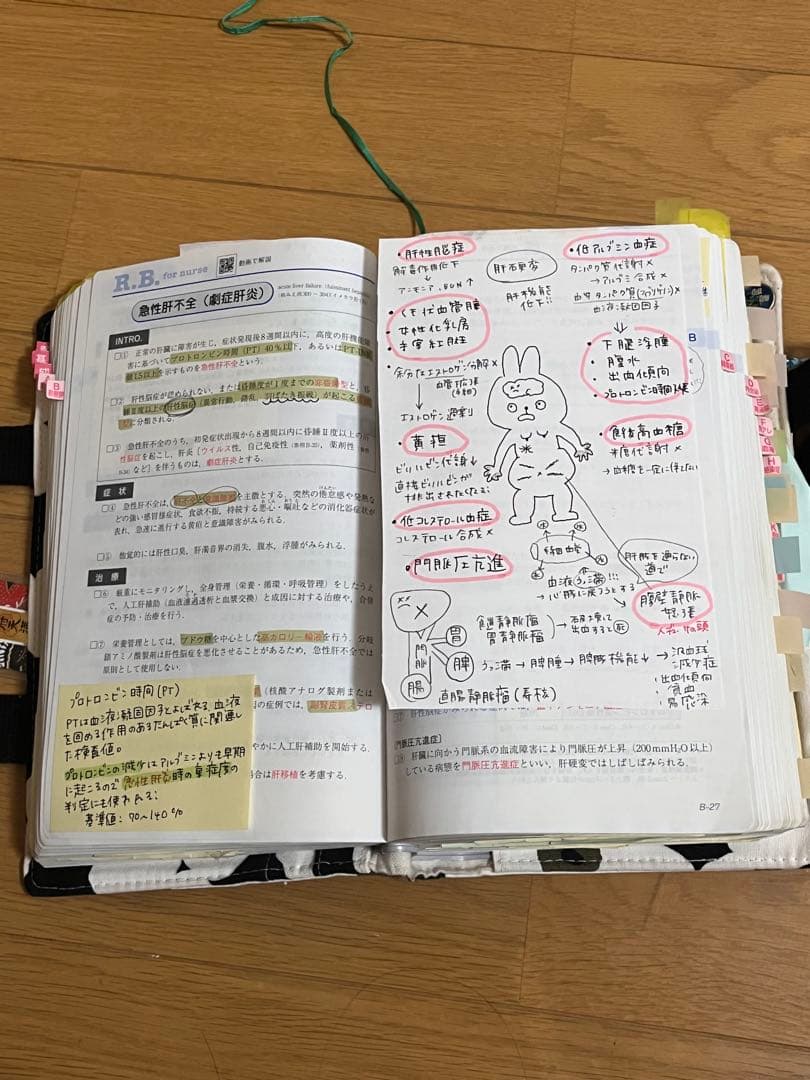 R.B. for nurse
動画で解説
急性肝不全（劇症肝炎）
acute liver failure (fulminant
INTRO.
□① 正常の肝臓に障害が生じ，症状発現後8週間以内に，高度の肝機能
害に基づいてプロトロンビン時間（PT）40％以下，あるいはPT-INR
値1.5以上を示すものを急性肝不全という．
肝性脳症が認められない，または昏睡度がⅠ度までの非昏睡型と，昏
睡Ⅱ度以上の肝性脳症（異常行動，錯乱，羽ばたき振戦）が起こる
に分類される．
□③ 急性肝不全のうち，初発症状出現から8週間以内に昏睡Ⅱ度以上の肝
性脳症を起こし，肝炎［ウイルス性，自己免疫性，薬剤性
など］を伴うものは，劇症肝炎とする．
症状
□④ 急性肝不全は，肝不全と意識障害を主徴とする．突然の倦怠感や発熱な
どの強い感冒様症状，食欲不振，持続する悪心・嘔吐などの消化器症状が
表れ，急速に進行する黄疸と意識障害がみられる．
□⑤ 他覚的には肝性口臭，肝濁音界の消失，腹水，浮腫がみられる．
治療
□⑥ 厳重にモニタリングし，全身管理（栄養・循環・呼吸管理）をしたうえ
で，人工肝補助（血液濾過透析と血漿交換）と成因に対する治療や，合併
症の予防・治療を行う．
□⑦ 栄養管理としては，ブドウ糖を中心とした高カロリー輸液を行う．分岐
鎖アミノ酸製剤は肝性脳症を悪化させることがあるため，急性肝不全では
原則として使用しない．
（核酸アナログ製剤または
の症例では，副腎皮質ステロ
やかに人工肝補助を開始する．
場合は肝移植を考慮する．
プロトロンビン時間（PT）
PTは血液凝固因子とよばれる，血液
を固める作用のあるたんぱく質に関連し
た検査値。
プロトロンビンの減少はアルブミンよりも早期
に起こるので急性肝炎時の重症度の
判定にも使われる。
基準値：70～140％
・肝性脳症
解毒作用低下
↓
アンモニア,BUN↑
・くも状血管腫
・女性化乳房
・手掌紅斑
・余分なエストロゲン分解×
血管拡張
↓
エストロゲン過剰
・黄疸
ビリルビン代謝↓
直接ビリルビンが
排出されなくなる
・低コレステロール血症
コレステロール合成×
・門脈圧亢進
肝硬変
肝機能
低下!!
・低アルブミン血症
タンパク質代謝×
→アルブミン合成×
血液凝固因子
↓
・下腿浮腫
・腹水
・出血傾向
・プロトロンビン時間
・食後高血糖
糖代謝×
→血糖を一定に保てない
肝臓を通らない
道で
血液うっ滞!!!
→心臓に戻ろうとする
腹壁静脈
怒張
メデューサの頭
門脈
胃
脾
腸
食道静脈瘤
胃静脈瘤
→破裂して
出血すると死
うっ滞→脾腫→脾臓機能↓→汎血球
減少症
・出血傾向
・貧血
・易感染
直腸静脈瘤（痔核）
［門脈圧亢進症］
肝臓に向かう門脈系の血流障害により門脈圧が上昇（200mmH₂O以上）
している病態を門脈圧亢進症といい，肝硬変ではしばしばみられる．
B-27